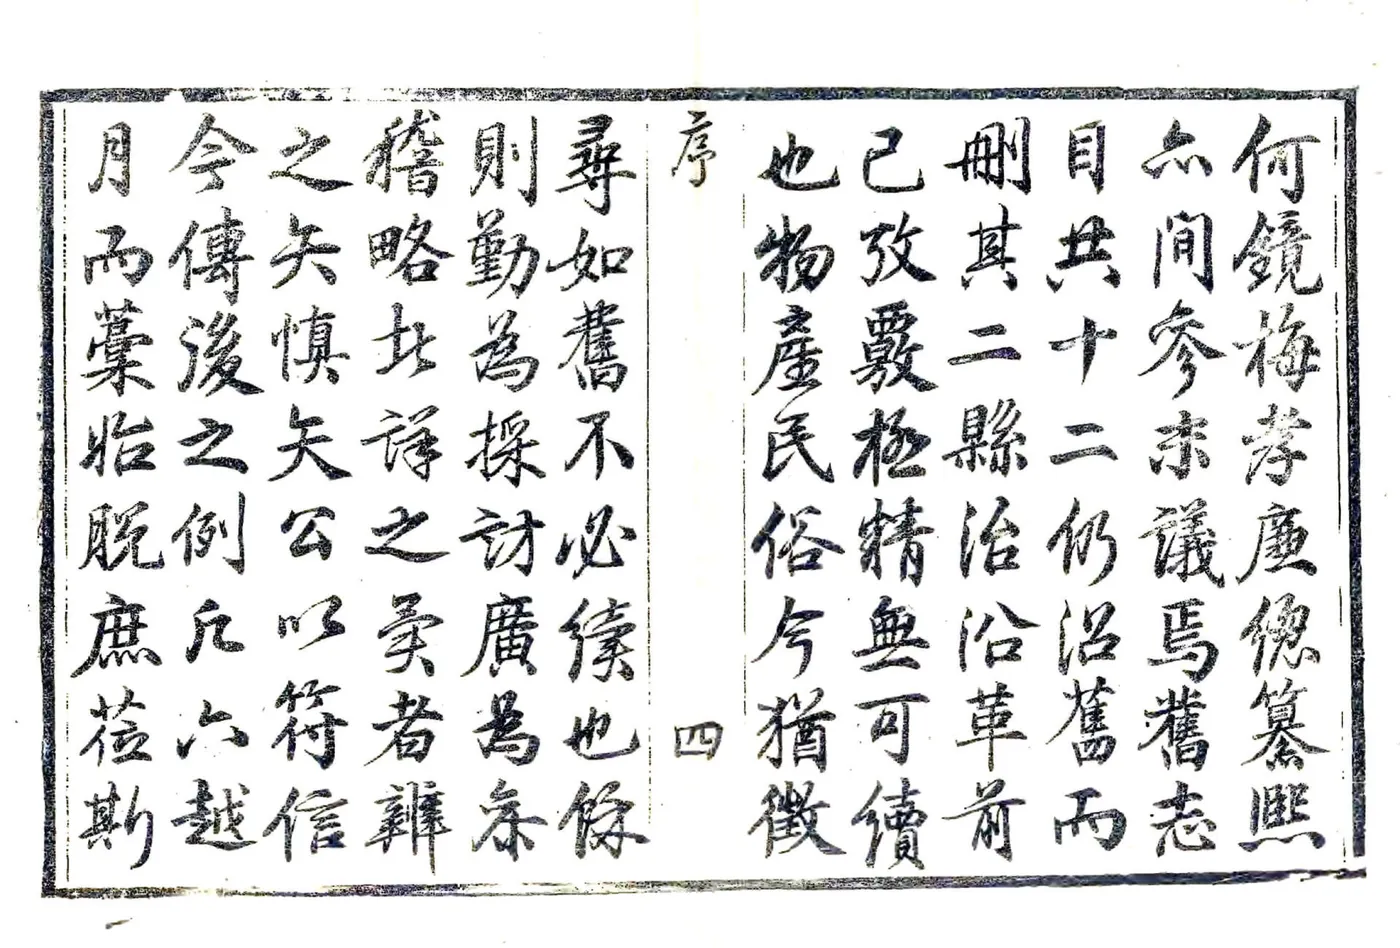 何鏡梅孝廉偬纂熙
亦間參末議焉舊志
目共十二仍沿舊而
刪其二縣治沿革前
已攷覈極精無可續
也物產民俗今猶徵
序
四
尋如舊不必續也餘
則勤為採訪廣為叅
稽略此詳之奚者辨
之矢慎矢公以符信
今傳後之例凡六越
月而藁始脫庶莅斯